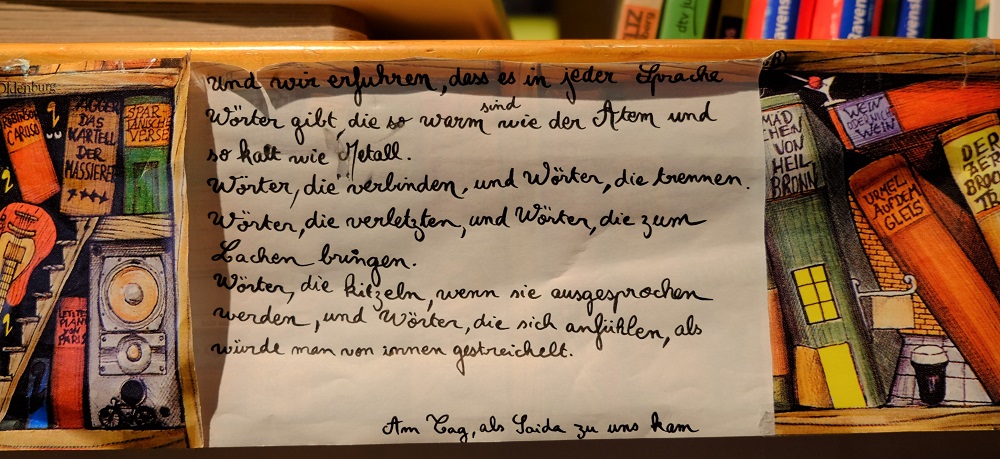 Oldenburg
CARUSO
DAS
KARTELL
DER
MASSIERER
SPAR
TANISCHE
VERSE
LETZTE
PARIS
Und wir erfuhren, dass es in jeder Sprache
sind
Wörter gibt, die so warm wie der Atem und
so kalt wie Metall.
Wörter, die verbinden, und Wörter, die trennen.
Wörter, die verletzten, und Wörter, die zum
Lachen bringen.
Wörter, die kitzeln, wenn sie ausgesprochen
werden, und Wörter, die sich anfühlen, als
würde man von innen gestreichelt.
Am Tag, als Saida zu uns kam
dtv junior
Ravens
Ravens
MÄD
CHEN
VON
HEIL
BRONN
WEIN
ODER NICHT
WEIN
URMEL
AUF DEM
GLEIS
DER
ZER
BROCH